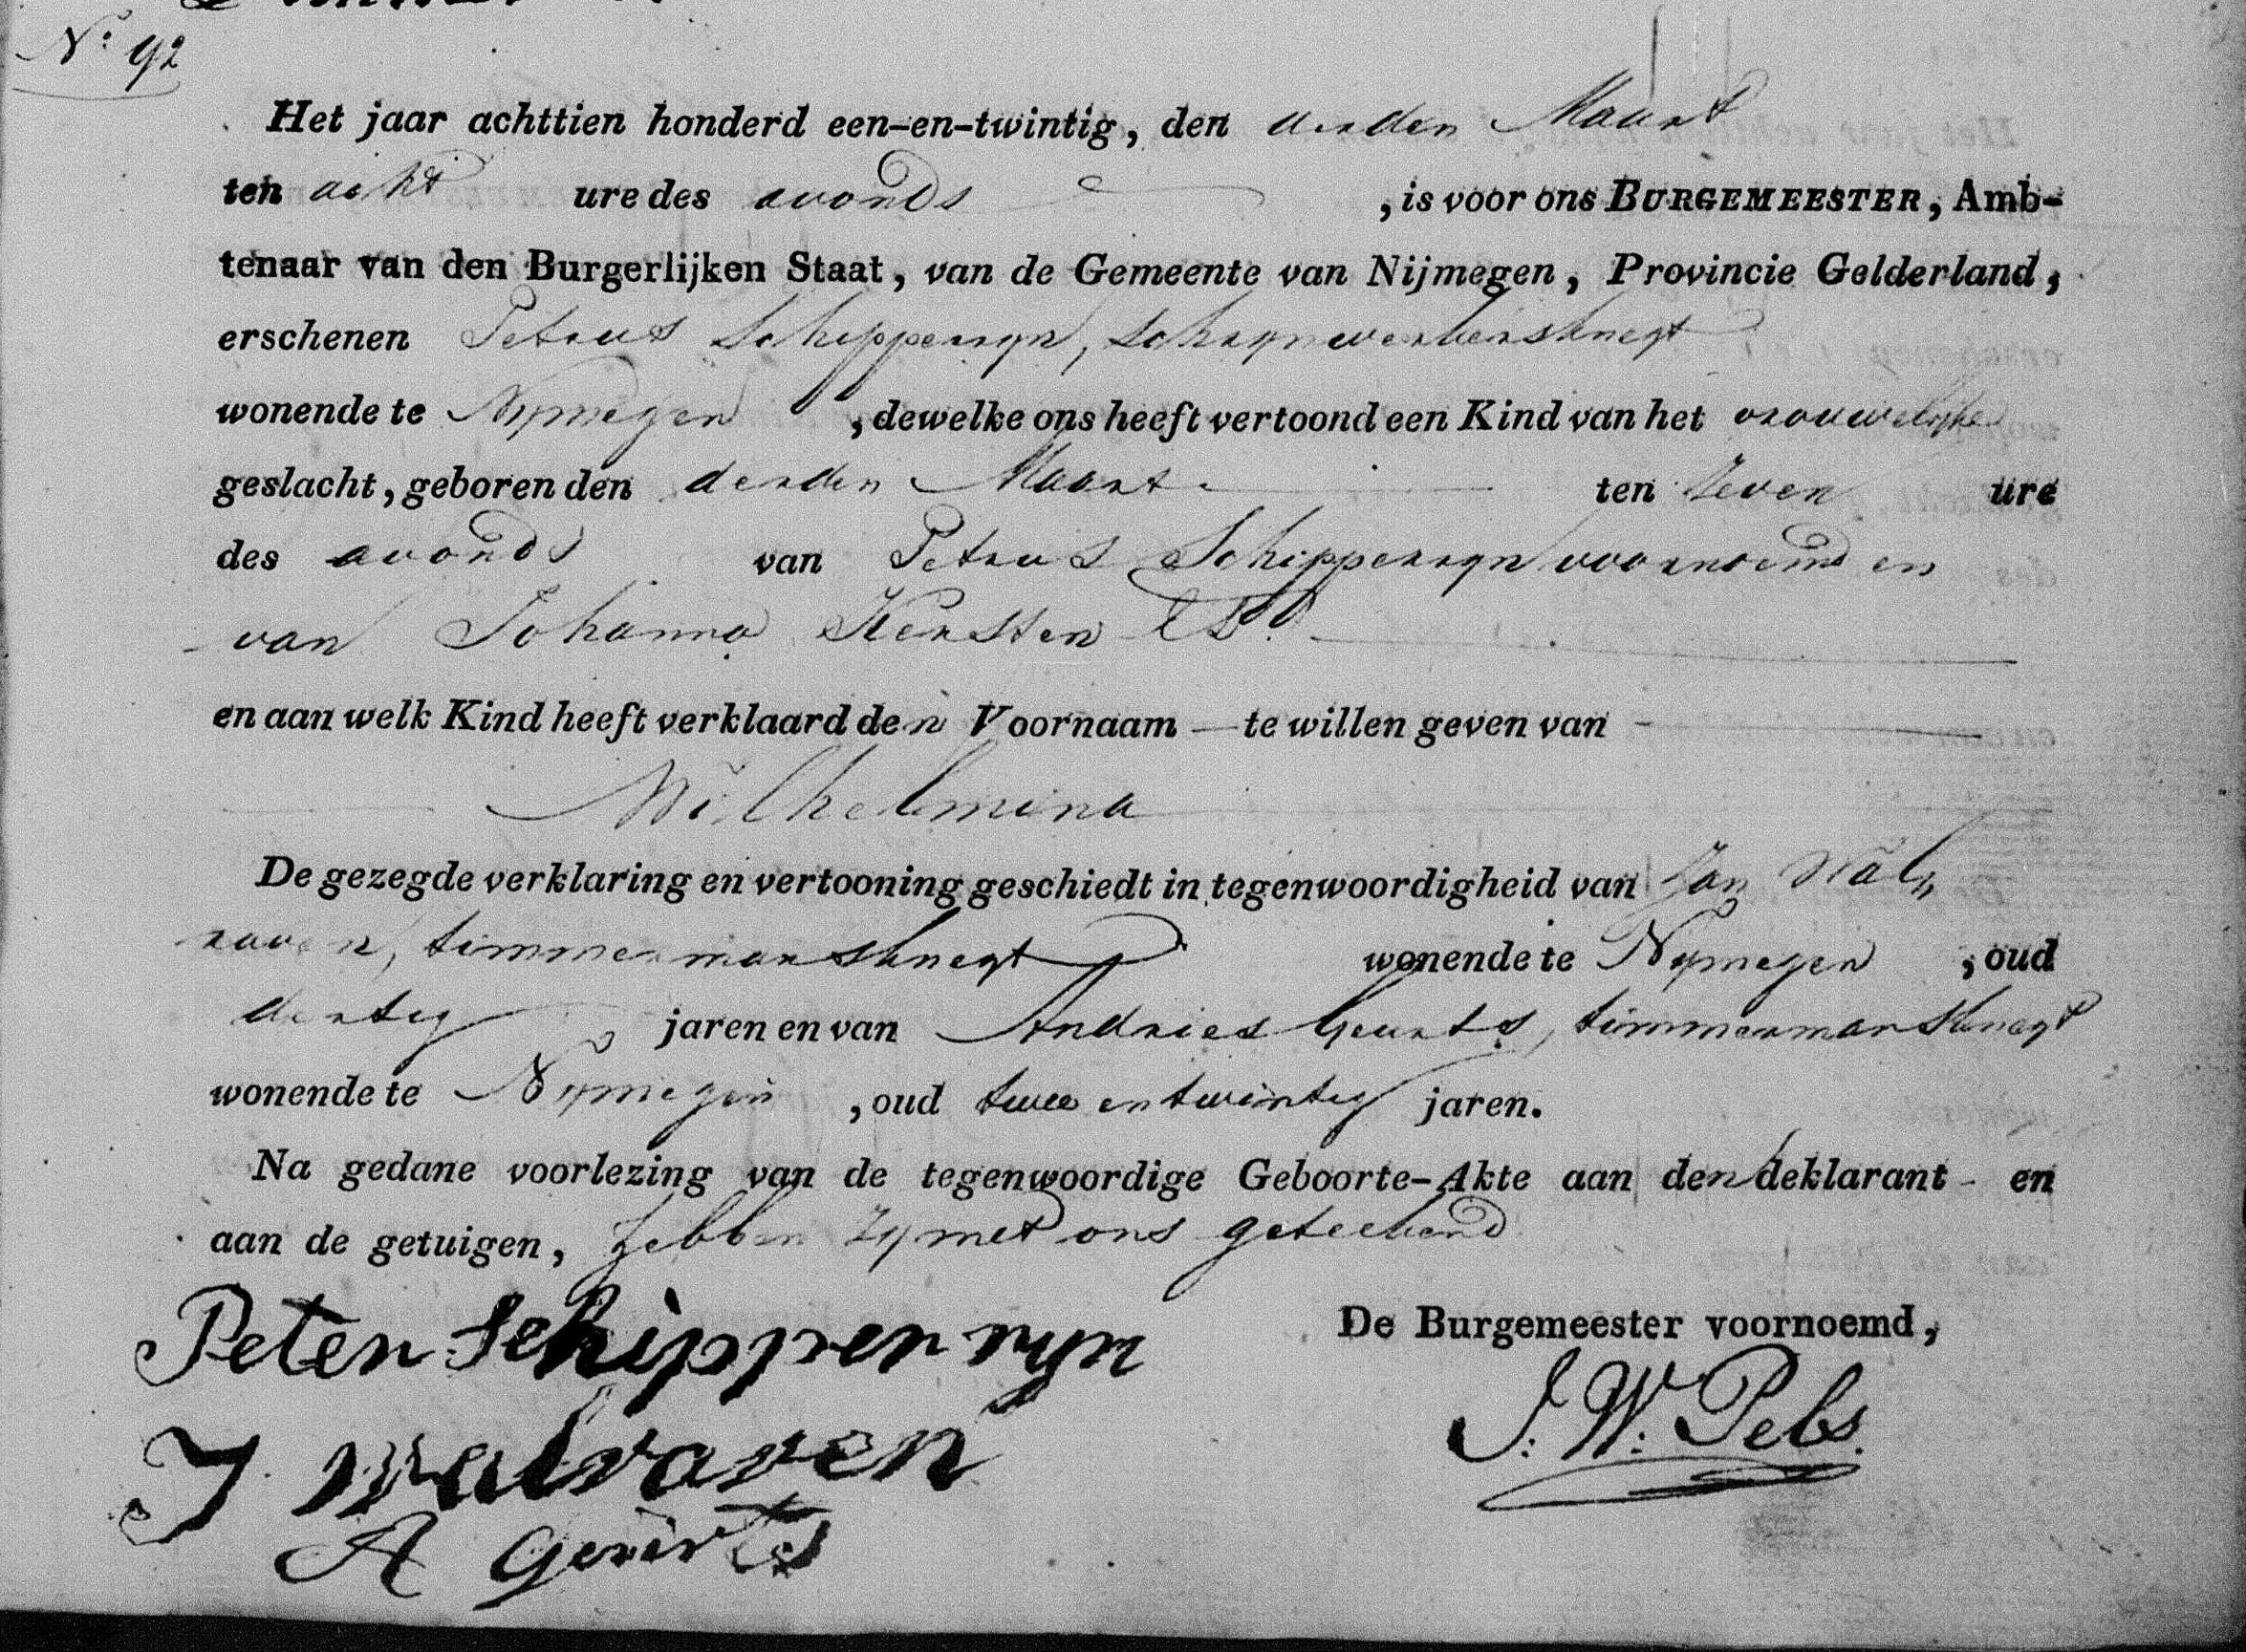 No 92
Het jaar achttien honderd een-en-twintig, den derden Maart
ten acht ure des avonds , is voor ons BURGEMEESTER, Amb-
tenaar van den Burgerlijken Staat, van de Gemeente van Nijmegen, Provincie Gelderland,
erschenen Petrus Schipperryn, schrynwerkersknegt
wonende te Nymegen , dewelke ons heeft vertoond een Kind van het vrouwelyke
geslacht, geboren den derden Maart ten Zeven ure
des avonds van Petrus Schipperryn voornoemd en
van Johanna Kersten
en aan welk Kind heeft verklaard den Voornaam — te willen geven van
Wilhelmina
De gezegde verklaring en vertooning geschiedt in tegenwoordigheid van Jan Wal„
raven, timmermansknegt wonende te Nymegen , oud
dertig jaren en van Andries Geurts, timmermansknegt
wonende te Nymegen , oud twee en twintig jaren.
Na gedane voorlezing van de tegenwoordige Geboorte-Akte aan den deklarant - en
aan de getuigen, hebben zy met ons geteekend
De Burgemeester voornoemd,
Peter Schipperryn
J. W. Pels.
J walraven
A Geurts